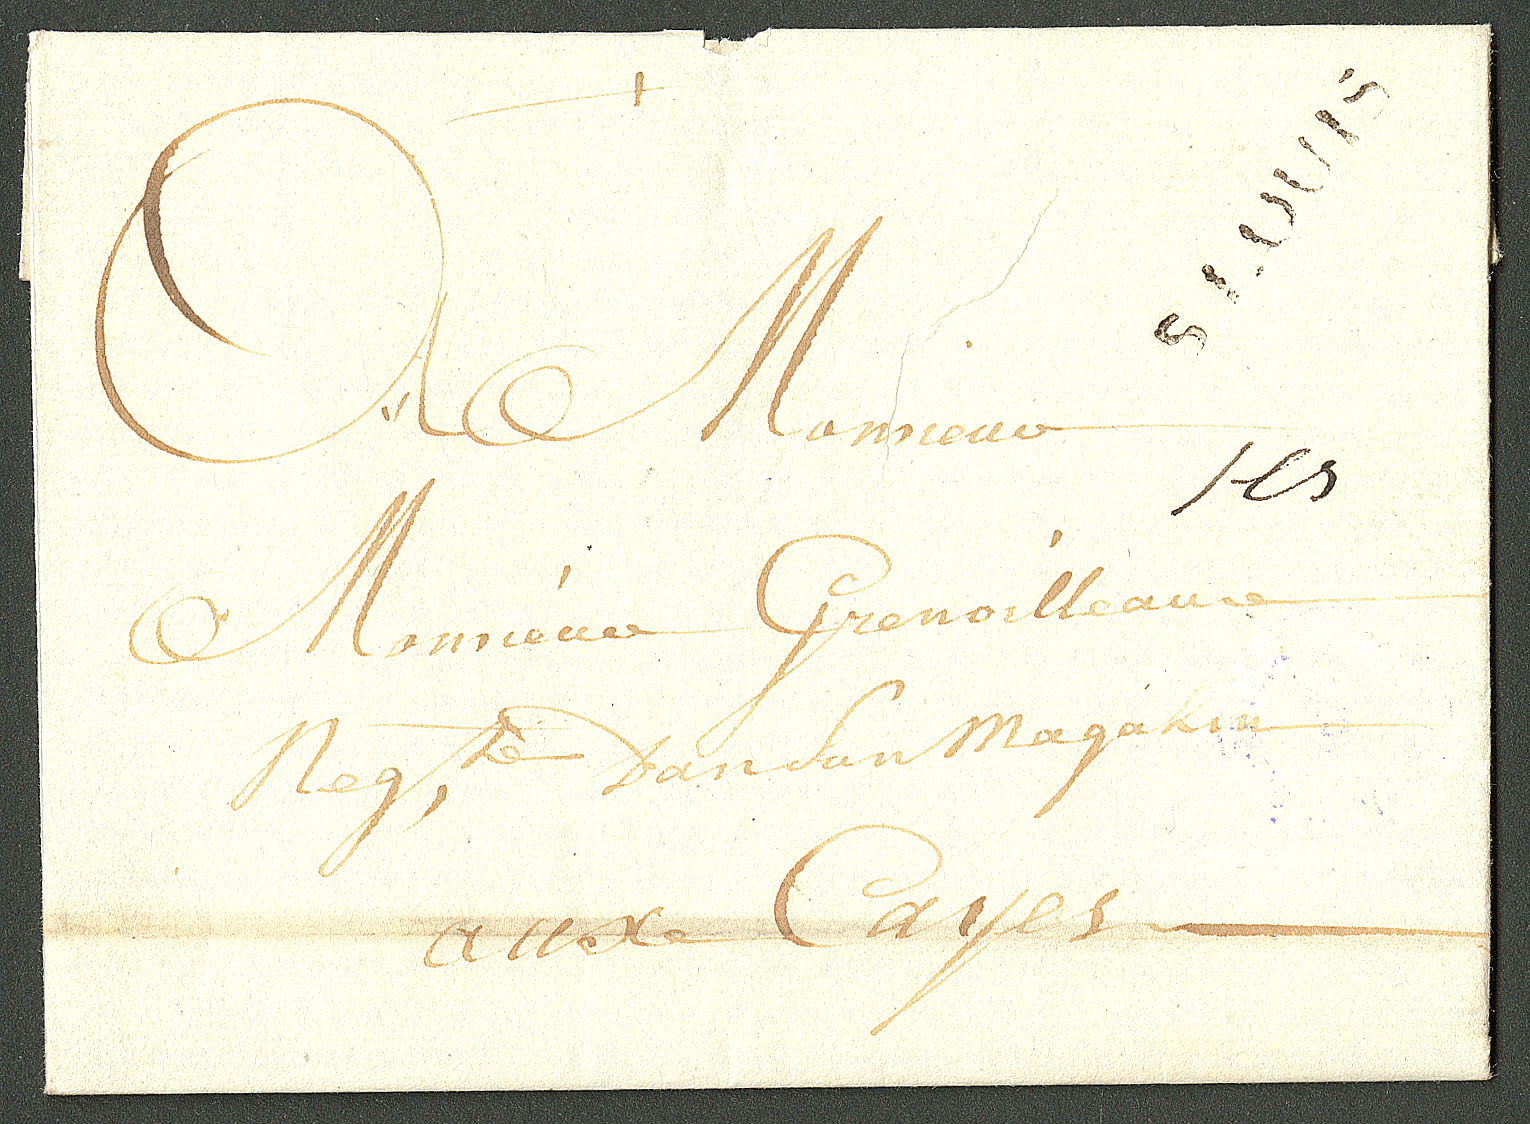 S LOUIS
A Monsieur
Monsieur Grenoilleaux
Neg.te Dan Son Magahin
aux Cayes